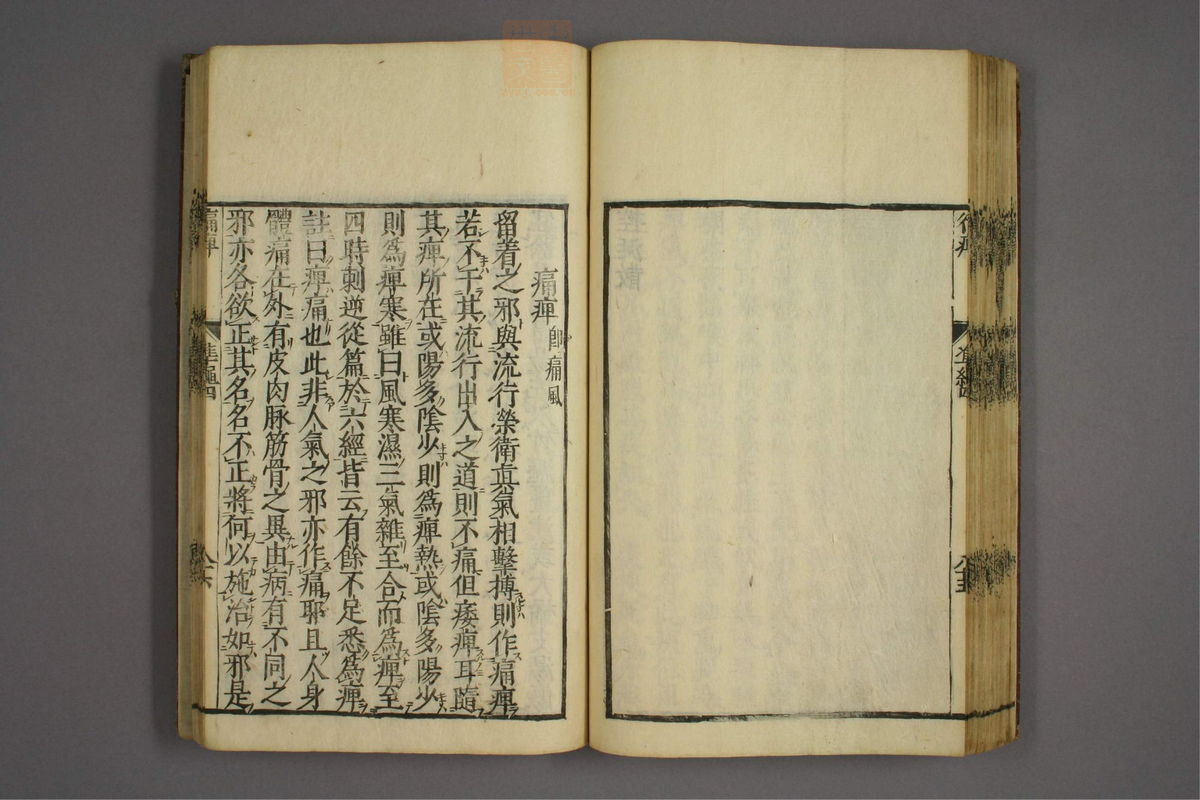 痛痺 卽痛風
留着之邪與流行榮衛眞氣相擊搏則作痛痺
若不干其流行出入之道則不痛但痿痺耳隨
其痺所在或陽多陰少則爲痺熱或陰多陽少
則爲痺寒雖曰風寒濕三氣雜至合而爲痺至
四時刺逆從篇於六經皆云有餘不足悉爲痺
註曰痺痛也此非人氣之邪亦作痛耶且人身
體痛在外有皮肉脉筋骨之異由病有不同之
邪亦各欲正其名名不正將何以施治如邪是
痛痺
準繩四